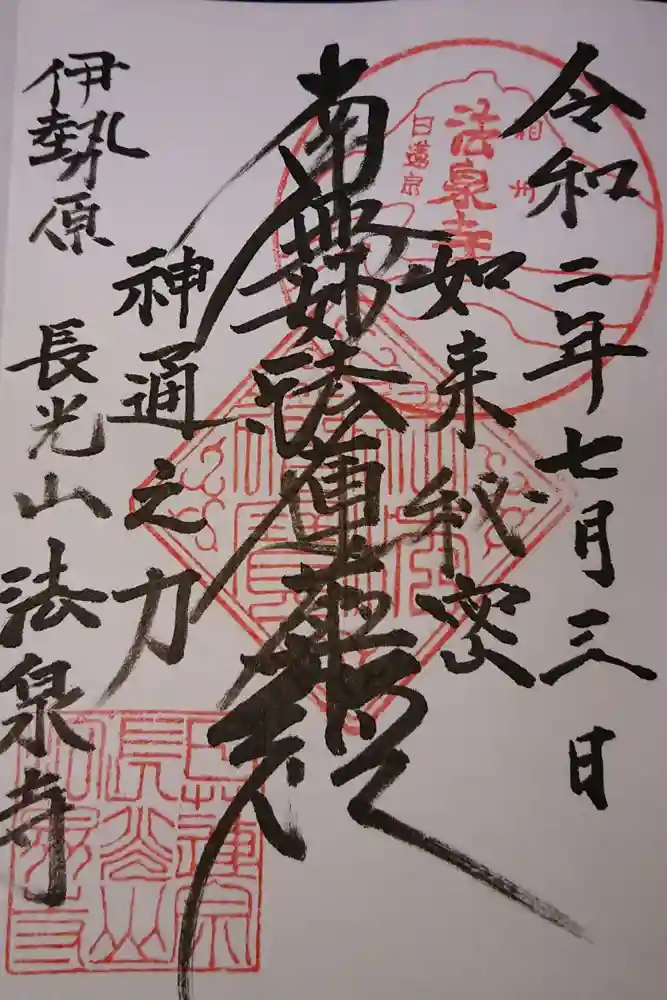 令和二年七月三日
如来秘密
南無妙法蓮華経
神通之力
伊勢原
長光山法泉寺
相州
法泉寺
日蓮宗
日蓮宗
長光山
法泉寺